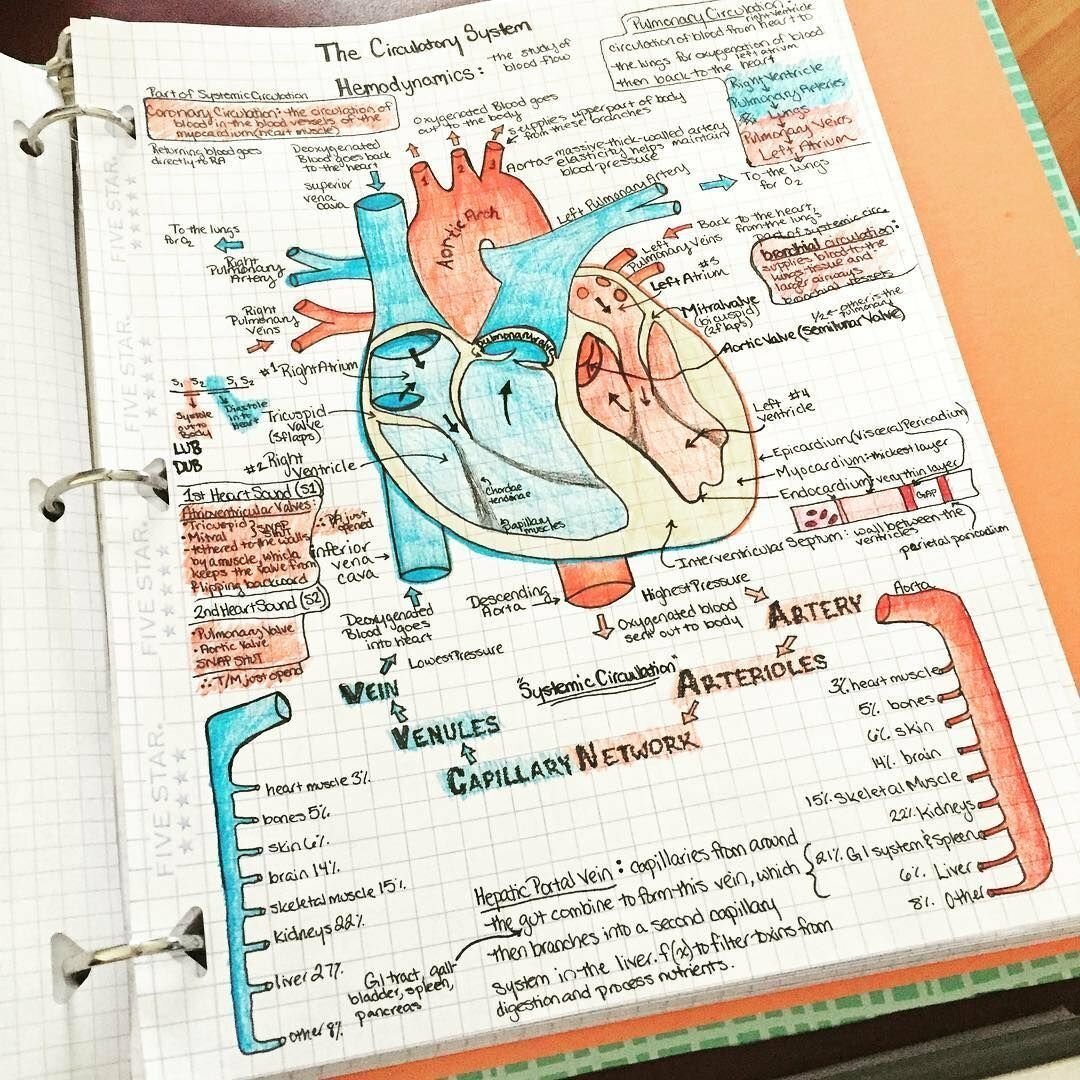 The Circulatory System
Hemodynamics: the study of
blood flow
Pulmonary Circulation:
circulation of blood from right ventricle heart to
the lungs for oxygenation of blood
then back to the heart left atrium
Right Ventricle
Pulmonary Arteries
Lungs
Pulmonary Veins
Left Atrium
Part of Systemic Circulation
Coronary Circulation: the circulation of
blood in the blood vessels of the
myocardium (heart muscle)
Returning blood goes
directly to RA
Deoxygenated
Blood goes back
to the heart
superior
vena
cava
Oxygenated Blood goes
out to the body
supplies upper part of body
from these branches
Aorta = massive-thick-walled artery
elasticity helps maintain
blood pressure
1 2 3
Aortic Arch
Left Pulmonary Artery
To the lungs
for O2
Back to the heart,
from the lungs
Left
Pulmonary Veins
#3
Left Atrium
part of systemic circ
bronchial circulation:
supplies blood to the
lungs tissue and
larger airways
bronchial vessels
1/2 other is the
pulmonary
Mitral valve
(bicuspid)
(2 flaps)
Aortic Valve (semilunar Valve)
To the lungs
for O2
Right
Pulmonary
Artery
Right
Pulmonary
Veins
Pulmonary valve
#1 Right Atrium
Tricuspid
valve
(3 flaps)
#2 Right
Ventricle
Chordae
tendonae
Papillary
muscles
Left #4
ventricle
Epicardium (Visceral Pericardium)
Myocardium = thickest layer
Endocardium = very thin layer
GAP
Interventricular Septum: wall between the
ventricles
parietal paricardium
S1 S2 S1 S2
Systole
out to
Body
Diastole
into
Heart
LUB
DUB
1st Heart Sound (S1)
Atrioventricular Valves:
• Tricuspid
• Mitral
SNAP
SHUT
∴ PA just
opened
- tethered to the walls
by a muscle, which
keeps the valve from
flipping backward
2nd Heart Sound (S2)
• Pulmonary Valve
• Aortic Valve
SNAP SHUT
∴ T/M just opend
inferior
vena
cava
Deoxygenated
Blood goes
into heart
Descending
Aorta
Highest Pressure
Oxygenated blood
sent out to body
Lowest Pressure
"Systemic Circulation"
ARTERY
ARTERIOLES
CAPILLARY NETWORK
VENULES
VEIN
Aorta
3% heart muscle
5% bones
6% skin
14% brain
15% Skeletal Muscle
22% Kidneys
21% GI system & Spleen
6% Liver
8% Other
heart muscle 3%
bones 5%
skin 6%
brain 14%
skeletal muscle 15%
kidneys 22%
liver 27%
other 8%
GI tract, gall
bladder, spleen,
pancreas
Hepatic Portal Vein: capillaries from around
the gut combine to form this vein, which
then branches into a second capillary
system in the liver. f(x) to filter toxins from
digestion and process nutrients.
FIVE STAR.
FIVE STAR.
FIVE STAR.
FIVE STAR.
FIVE STAR.